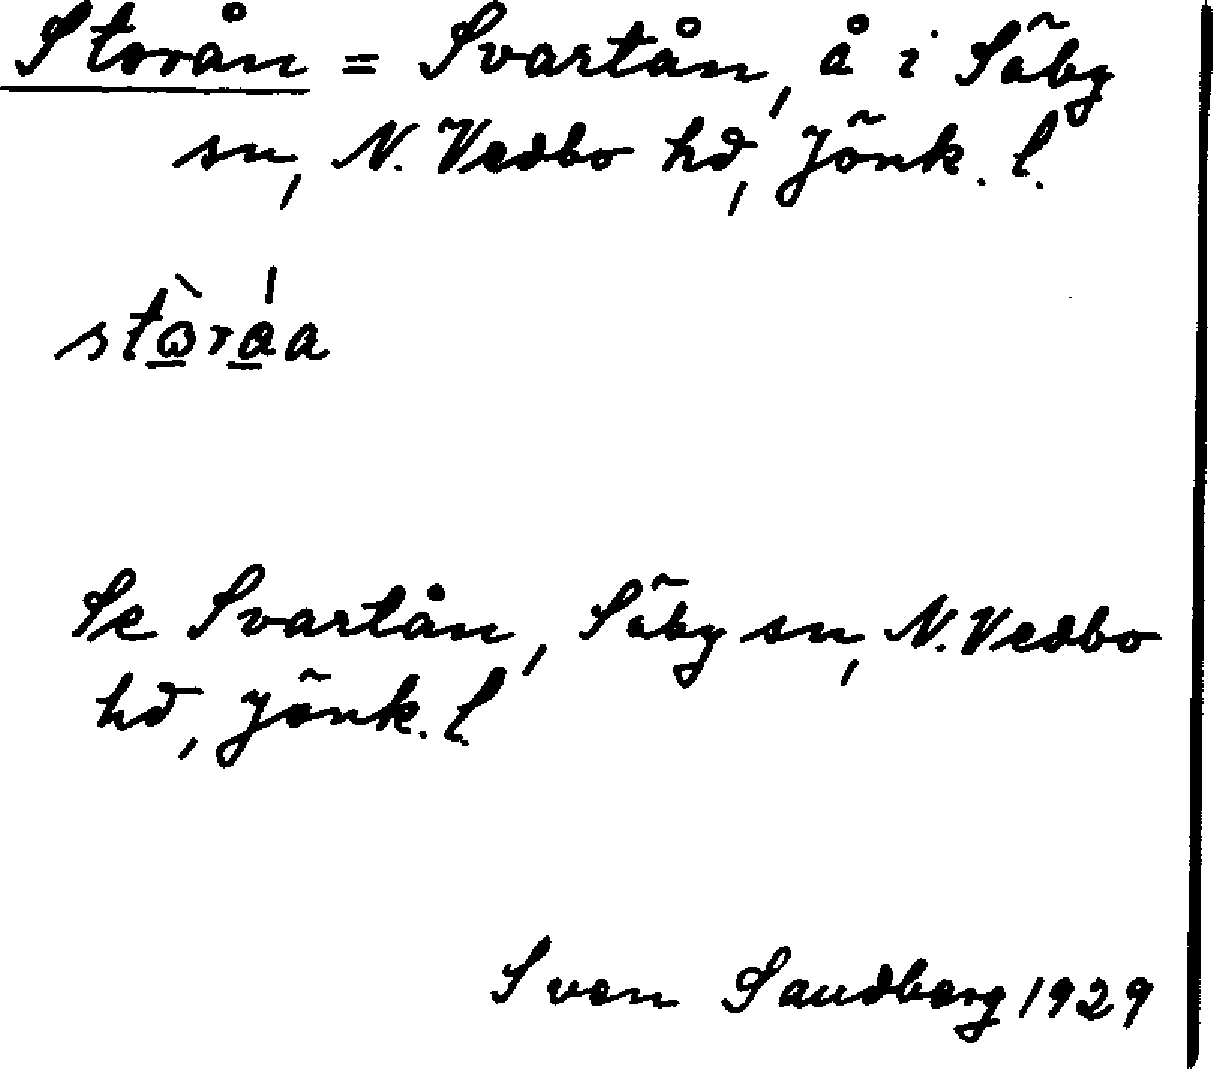 Storån = Svartån, å i Säby
sn, N. Vedbo hd, Jönk. l.
stὼ̲rá̲a
Se Svartån, Säby sn, N. Vedbo
hd, Jönk. l.
Sven Sandberg 1929